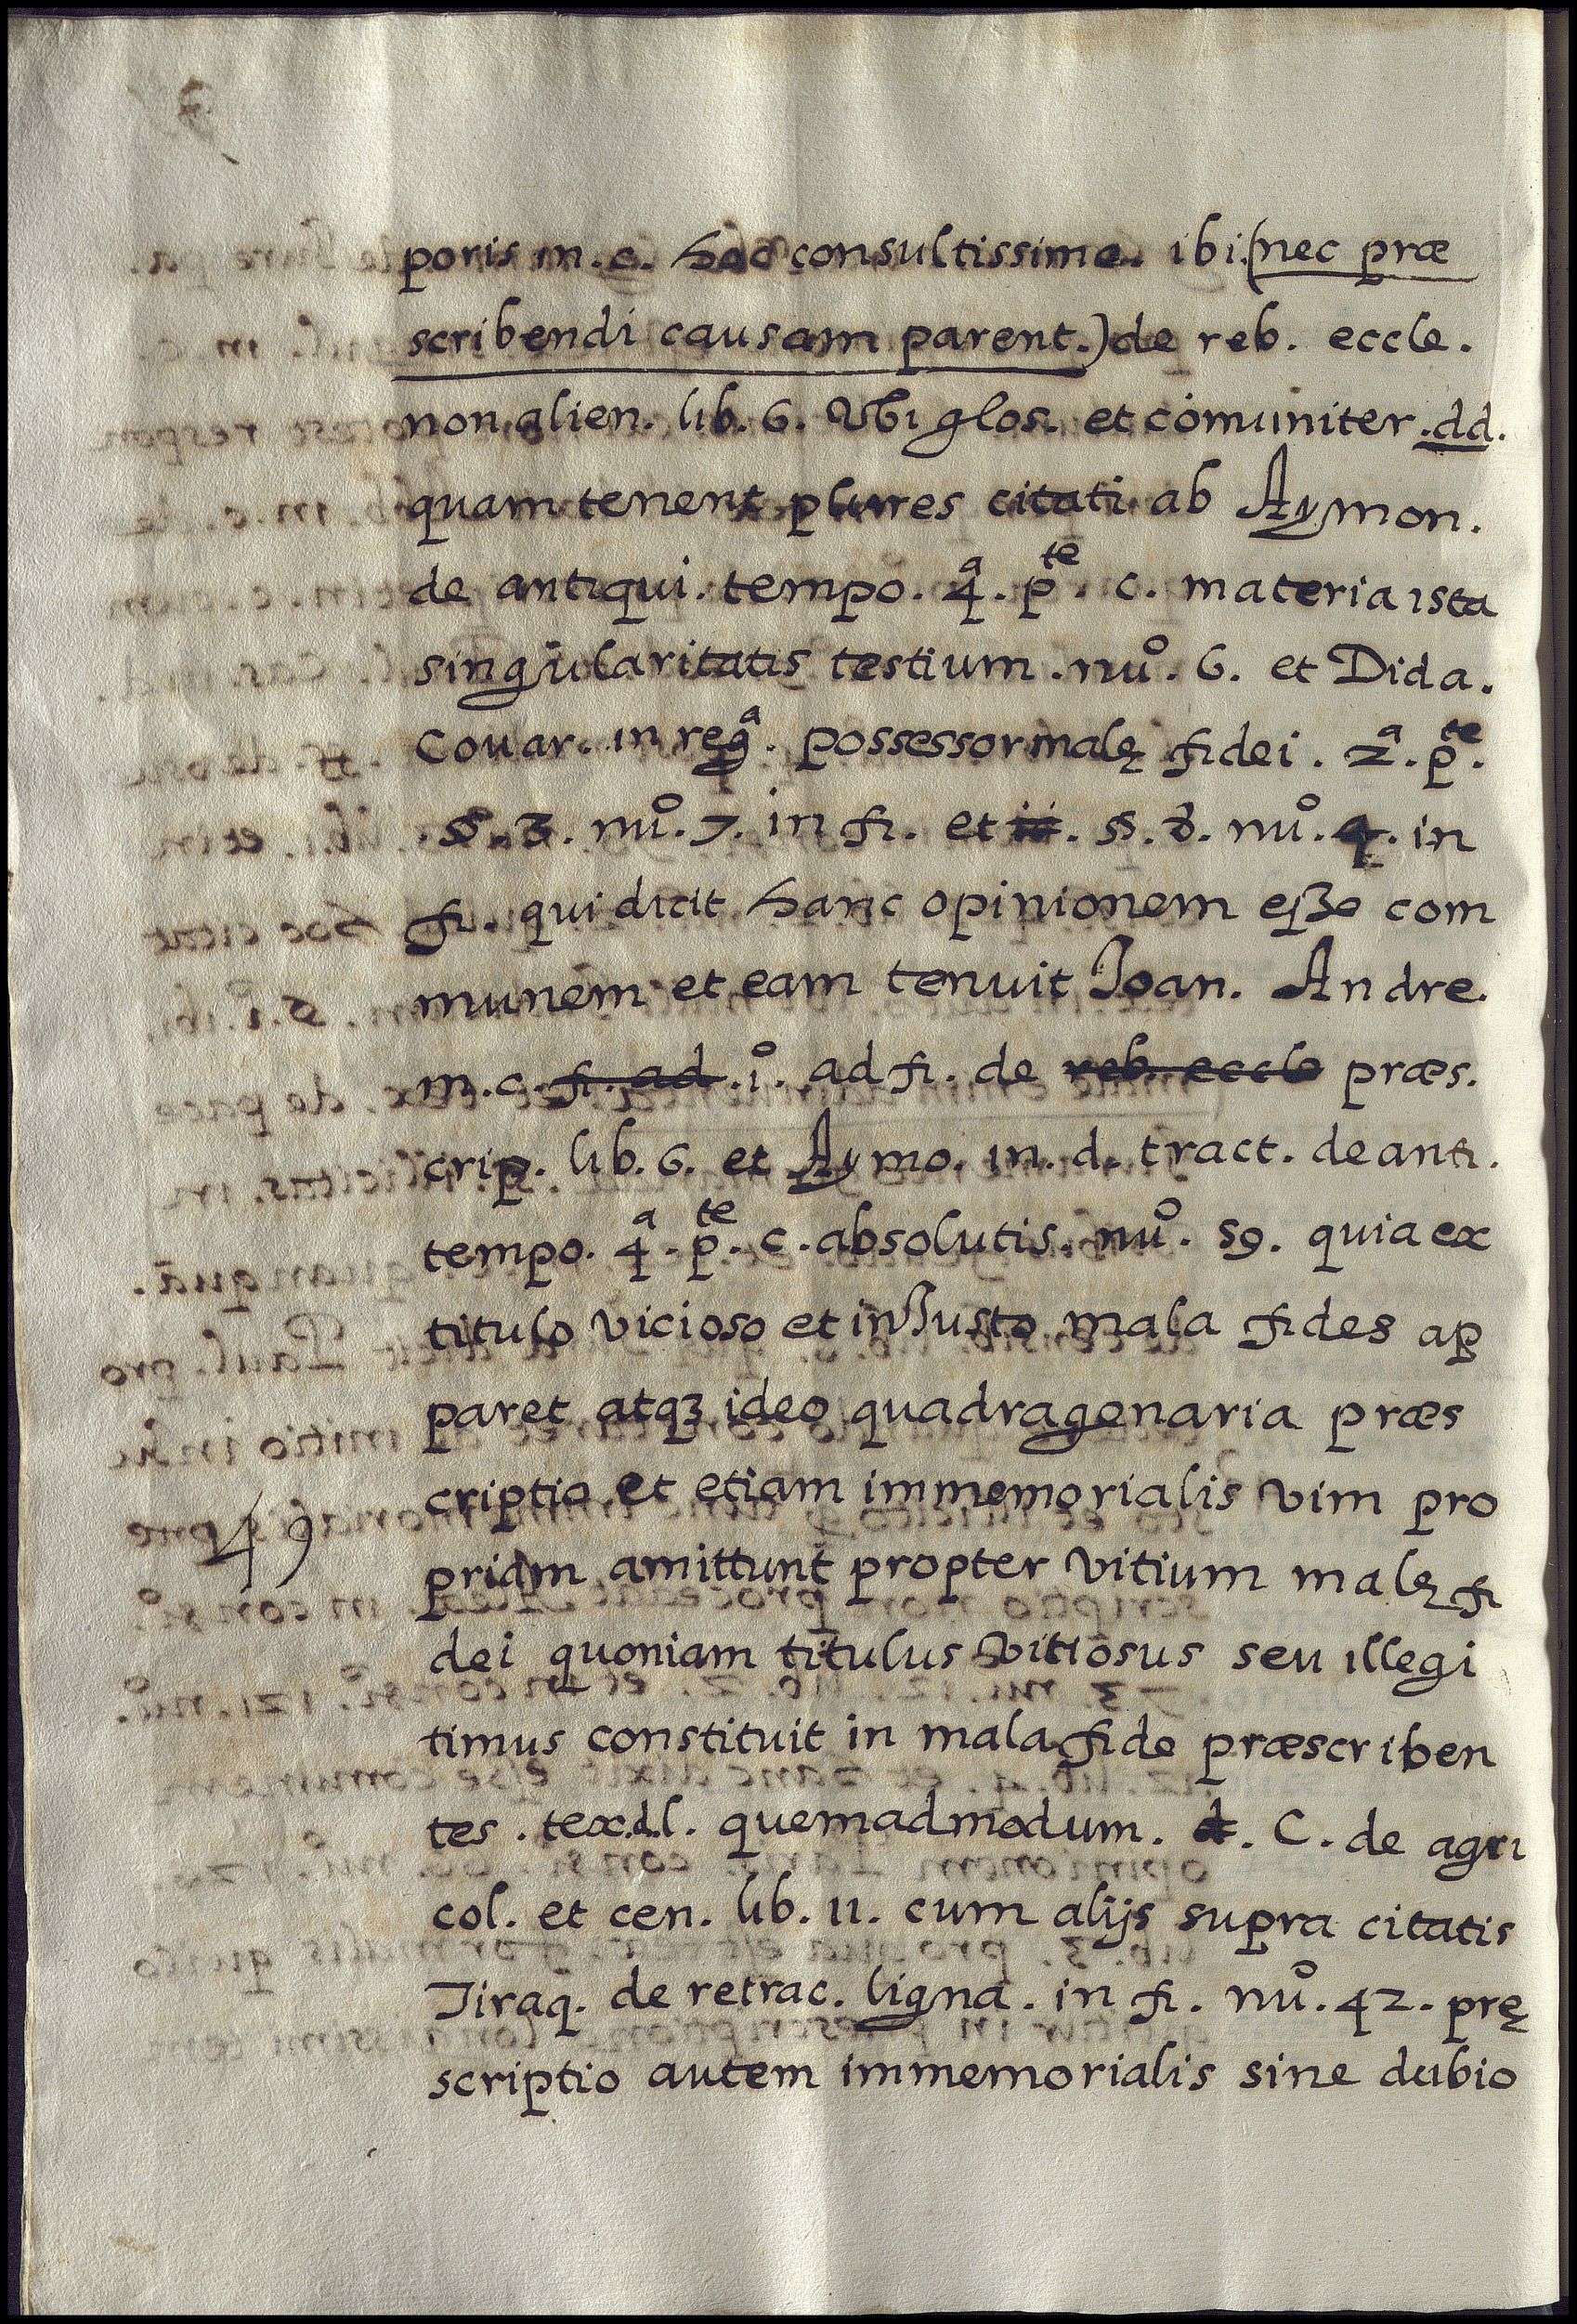 poris in. c. hoc consultissimo. ibi.(nec præ
scribendi causam parent.) de reb. eccle.
non alien. lib. 6. Vbi glos. et cōmuniter .dd.
quam tenent plures citati ab Aymon.
de antiqui. tempo. 4ª. pte. c. materia ista
singularitatis testium. nuº. 6. et Dida.
Couar. in regª. possessor malę fidei. 2ª. pte.
.§. 3. nuº. 7. in fi. et §. 8. nuº. 4. in
fi. qui dicit hanc opinionem eßе com
munem et eam tenuit Joan. Andre.
in. c. fi. ad .iº. ad fi. de reb. eccle præs.
crip. lib. 6. et Aymo. in. d. tract. de anti.
tempo. 4ª. pte. c. absolutis. nuº. 59. quia ex
titulo vicioso et inJusto mala fides ap
paret atqꝫ ideo quadragenaria præs
criptio et etiam immemorialis vim pro
49
priam amittunt propter vitium malę fi
dei quoniam titulus vitiosus seu illegi
timus constituit in mala fide præscriben
tes. tex.d.l. quemadmodum. C. de agri
col. et cen. lib. 11. cum alijs supra citatis
Tiraq. de retrac. ligna. in fi. nuº. 42. prę
scriptio autem immemorialis sine dubio